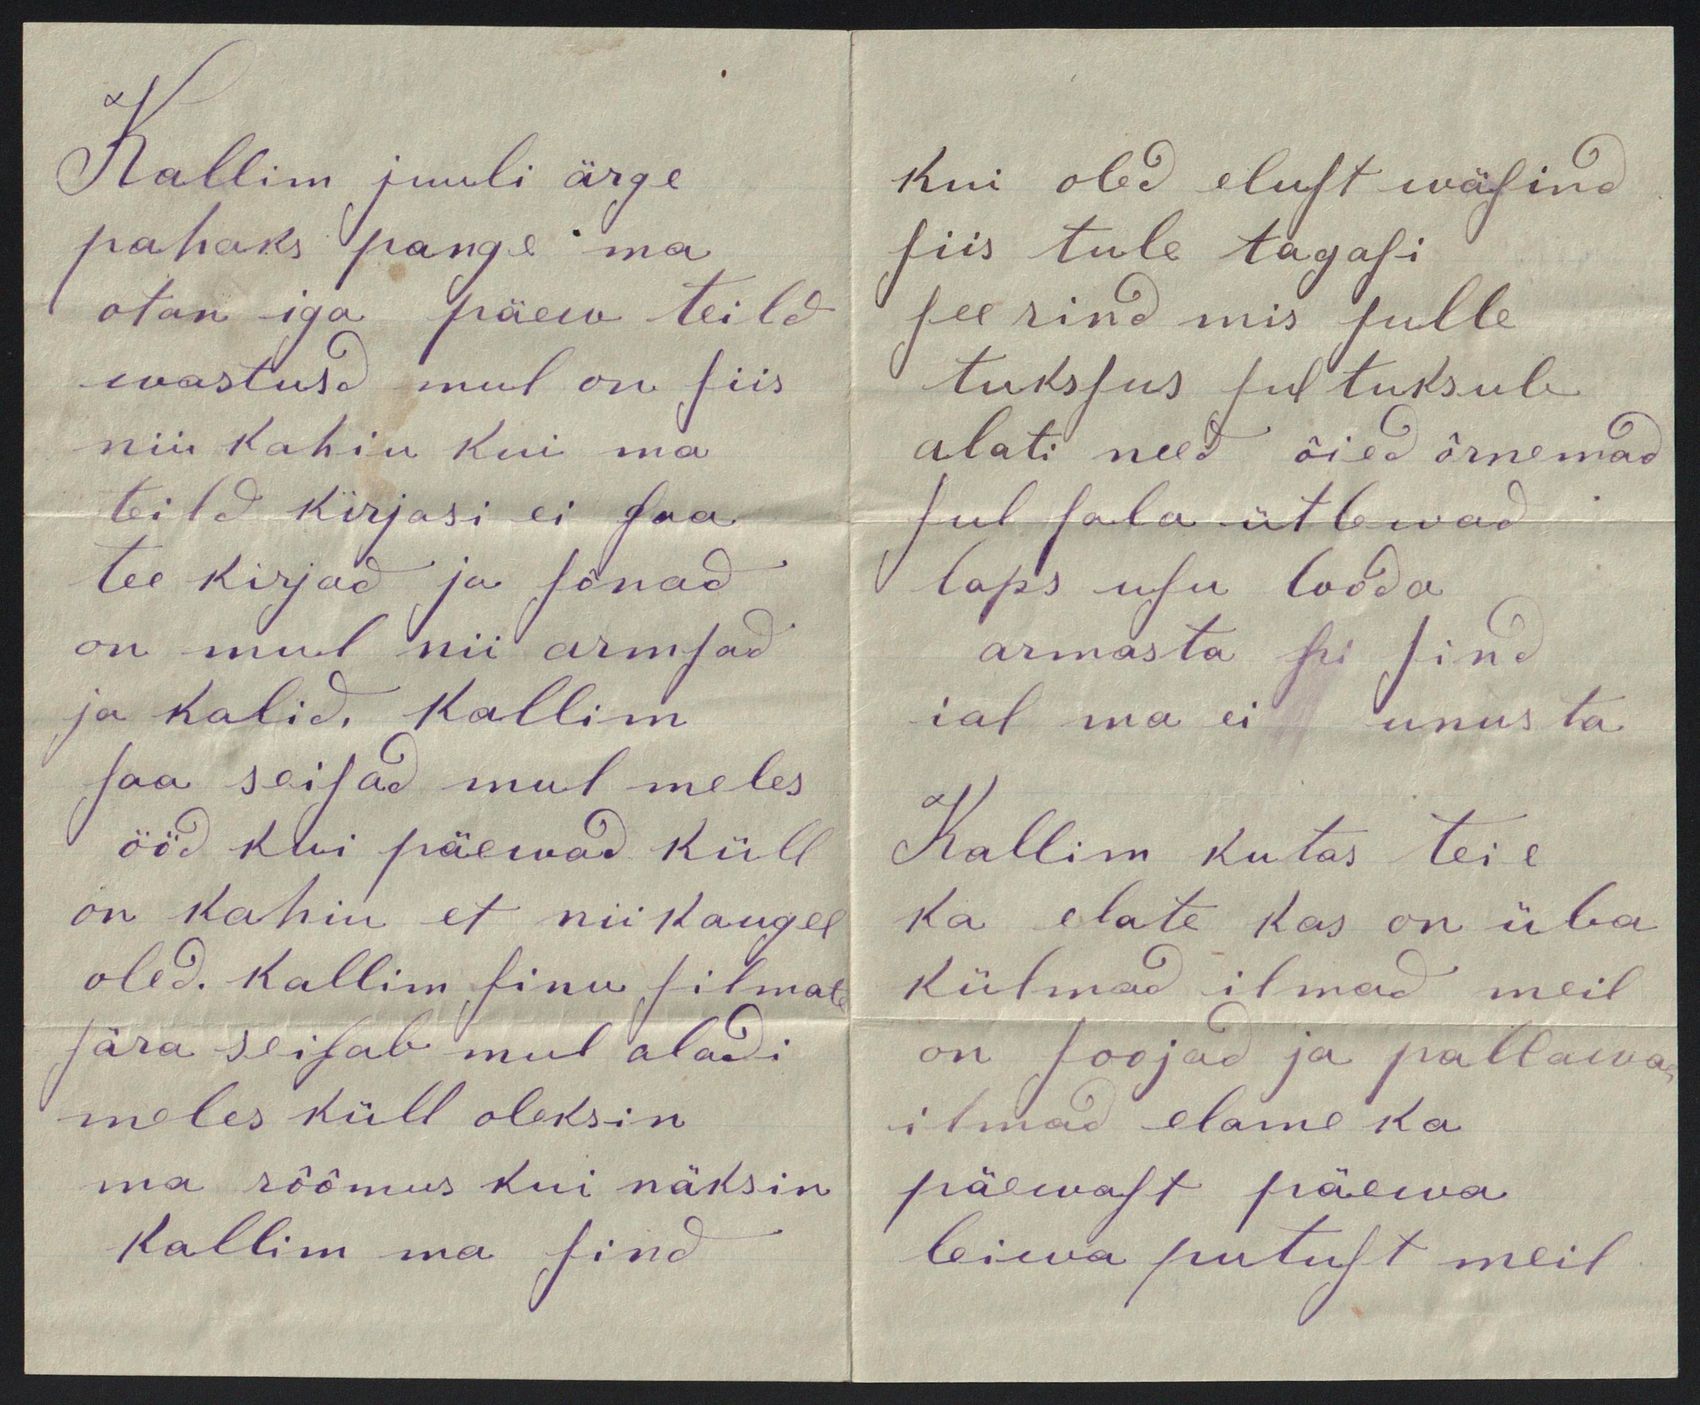 Kallim juuli ärge
pahaks pange ma
otan iga päew teild
wastusd mul on ſiis
nii kahiu kui ma
teild kirjasi ei ſaa
tee kirjad ja ſõnad
on mul nii armſad
ja kalid. Kallim
ſaa seiſad mul meles
ööd kui päewad küll
on kahiu et nii kaugel
oled. Kallim ſinu ſilmate
ſära seiſab mul aladi
meles küll oleksin
ma rõõmus kui näksin
Kallim ma ſind
kui oled eluſt wäſind
ſiis tule tagaſi
ſee rind mis ſulle
tuksſus ſul tuksub
alati need õied õrnemad
ſul ſala ütlewad
laps uſu looda
armasta ſind
ial ma ei unusta
Kallim kutas teie
ka elate kas on üba
külmad ilmad meil
on ſoojad ja pallawad
ilmad elame ka
päewaſt päewa
leiwa putuſt meil